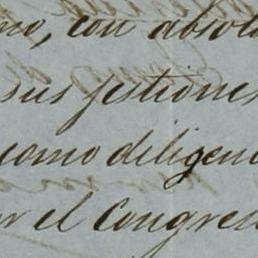 no, con absolu
sus jestiones
como diligenc
or el Congres